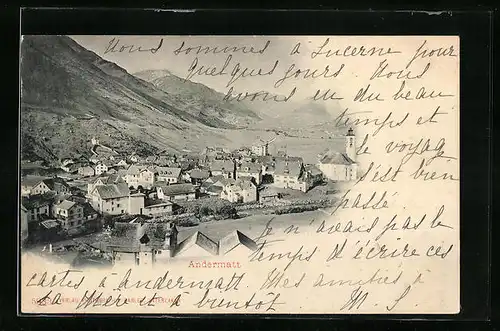 Nous sommes à Lucerne pour
quelques jours. Nous
avons eu du beau
temps et
le voyage
s'est bien
passé
Je n'avais pas le
temps d'écrire ces
cartes à Andermatt. Mes amitiés à
bientôt M S
Andermatt